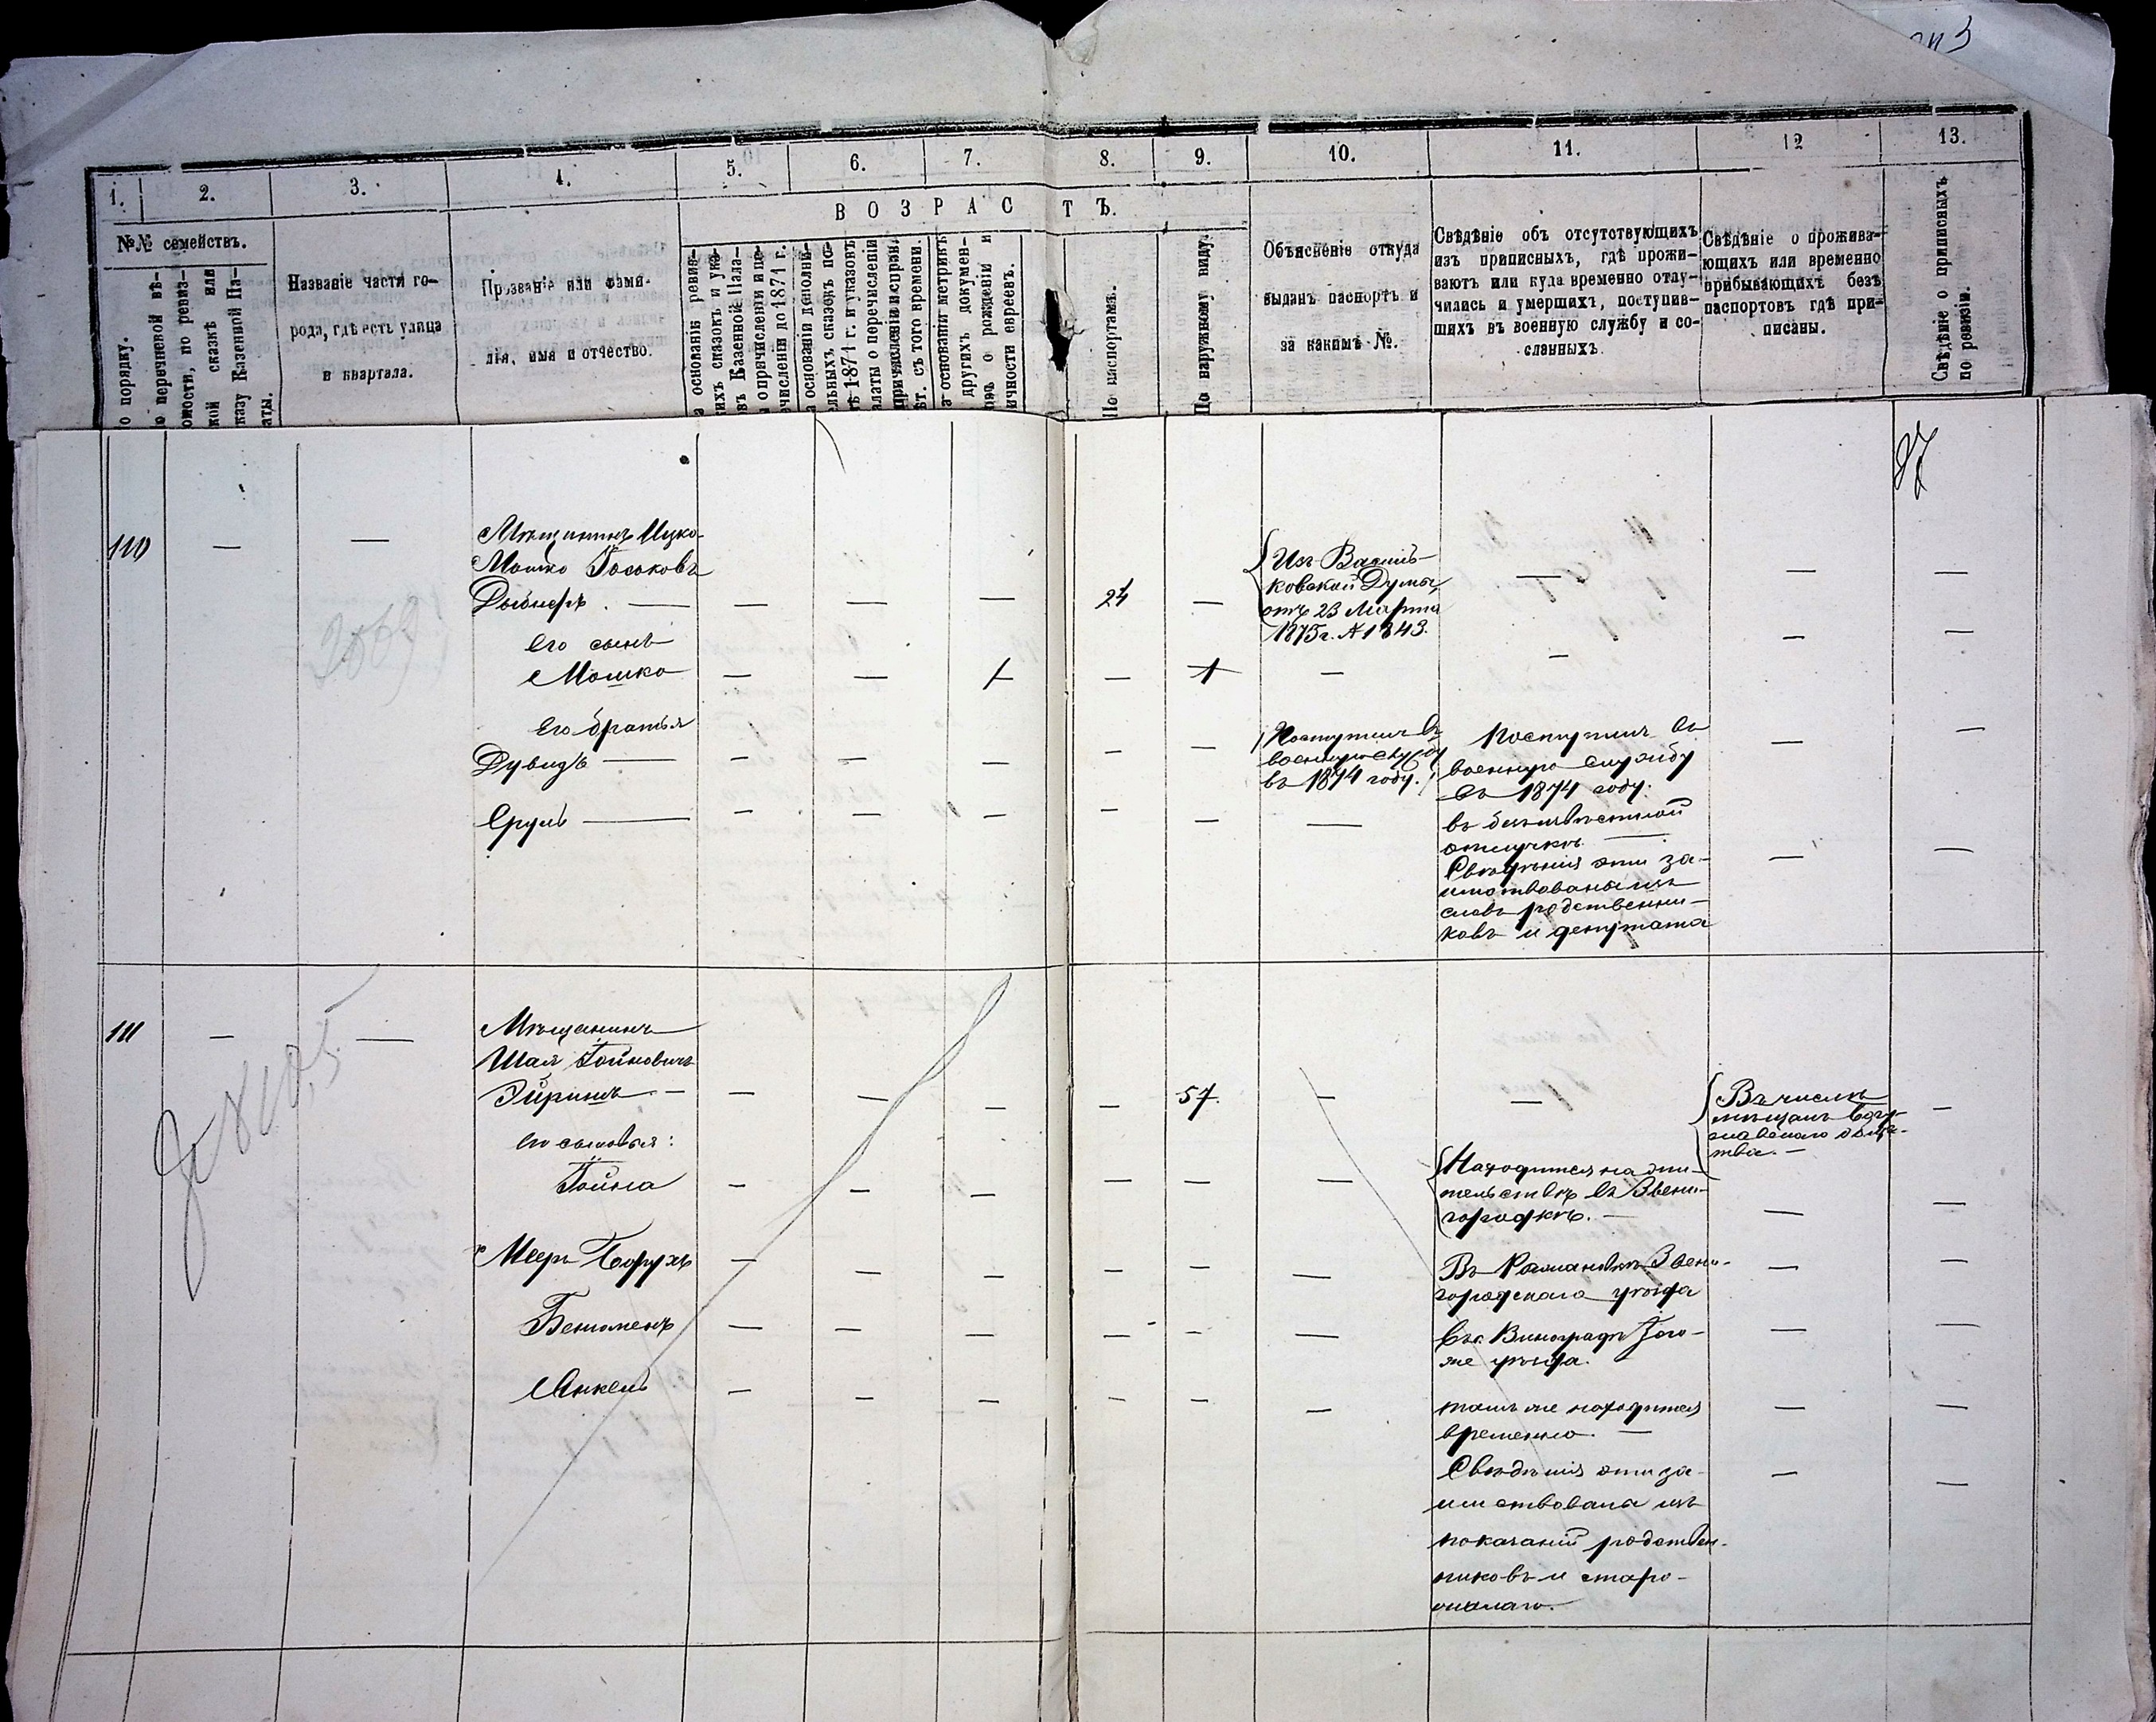 1.
2.
3.
4.
5.
6.
7.
8.
9.
10.
11.
12
13.
В О З Р А С Т Ъ.
№№ семействъ.
о порядку.
о перечневой вѣ-
омости, по ревиз-
кой сказкѣ или
казу Казенной Па-
аты.
Названіе части го-
рода, гдѣ есть улица
и квартала.
Прозваніе или фами-
лія, имя и отчество.
а основаніи ревиз-
гихъ сказокъ и ука-
овъ Казенной Пала-
ы о причисленіи и пе-
ечисленіи до 1871 г.
а основаніи дополни-
ельныхъ сказокъ по-
лѣ 1871 г. и указовъ
алаты о перечисленіи
причисленіи и исправ.
ѣт. съ того времени.
а основаніи метрикъ
другихъ докумен-
о рожденіи и
ичности евреевъ.
По паспортамъ.
По наружному виду.
Объясненіе откуда
выданъ паспортъ и
за какимъ №.
Свѣдѣніе объ отсутствующихъ
изъ приписныхъ, гдѣ прожи-
ваютъ или куда временно отлу-
чились и умершихъ, поступив-
шихъ въ военную службу и со-
сланныхъ.
Свѣдѣніе о прожива-
ющихъ или временно
прибывающихъ безъ
паспортовъ гдѣ при-
писаны.
Свѣдѣніе о приписныхъ
по ревизіи.
110
2069
Мѣщанинъ Ицко-
Мошко Іоськовъ
Дыбнеръ. —
24
Изъ Василь-
ковской Думы,
отъ 23 Марта
1875 г. № 1343.
его сынъ
Мошко
1
1
Его братья
Дувидъ —
Поступилъ въ
военную службу
въ 1874 году.
Поступилъ въ
военную службу
въ 1874 году.
Сруль —
въ безизвѣстной
отлучкѣ. —
Свѣдѣнія эти за-
имствованы изъ
словъ родственни-
ковъ и депутата
111
Мѣщанинъ
Шая Іойновичъ
57.
Въ числѣ
мѣщанъ Богу-
славскаго обще-
тва. —
его сыновья:
Іойна
Находится на жи-
тельствѣ въ Звени-
городкѣ. —
Мееръ Борухъ
Звени-
городскаго уѣзда
Беніоменъ
Въ с. Виноградъ того-
же уѣзда.
Янкель
тамъ же находится
временно. —
Свѣдѣнія эти за-
имствована изъ
показаній родствен-
никовъ и старо-